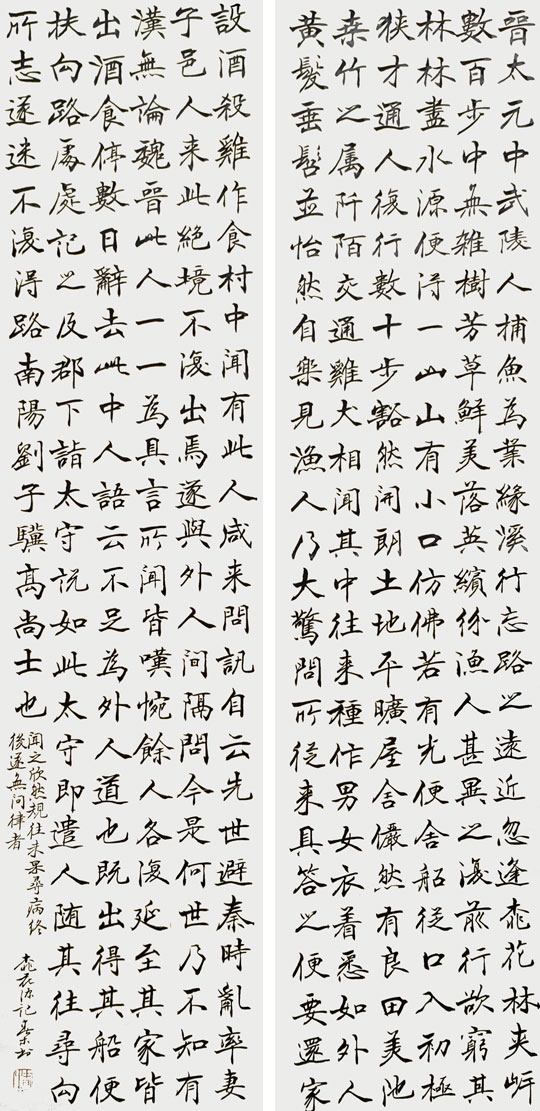 晉太元中武陵人捕魚為業緣溪行忘路之遠近忽逢桃花林夾岸
數百步中無雜樹芳草鮮美落英繽紛漁人甚異之復前行欲窮其
林林盡水源便得一山山有小口仿佛若有光便舍船從口入初極
狹才通人復行數十步豁然開朗土地平曠屋舍儼然有良田美池
桑竹之属阡陌交通雞犬相聞其中往来種作男女衣着悉如外人
黃髮垂髫並怡然自樂見漁人乃大驚問所從来具答之便要還家
設酒殺雞作食村中聞有此人咸来問訊自云先世避秦時亂率妻
子邑人来此絕境不復出焉遂與外人間隔問今是何世乃不知有
漢無論魏晉此人一一為具言所聞皆嘆惋餘人各復延至其家皆
出酒食停數日辭去此中人語云不足為外人道也既出得其船便
扶向路處處記之及郡下詣太守說如此太守即遣人随其往尋向
所志遂迷不復得路南陽劉子驥高尚士也
聞之欣然規往未果尋病終
後遂無问律者
桃花源記